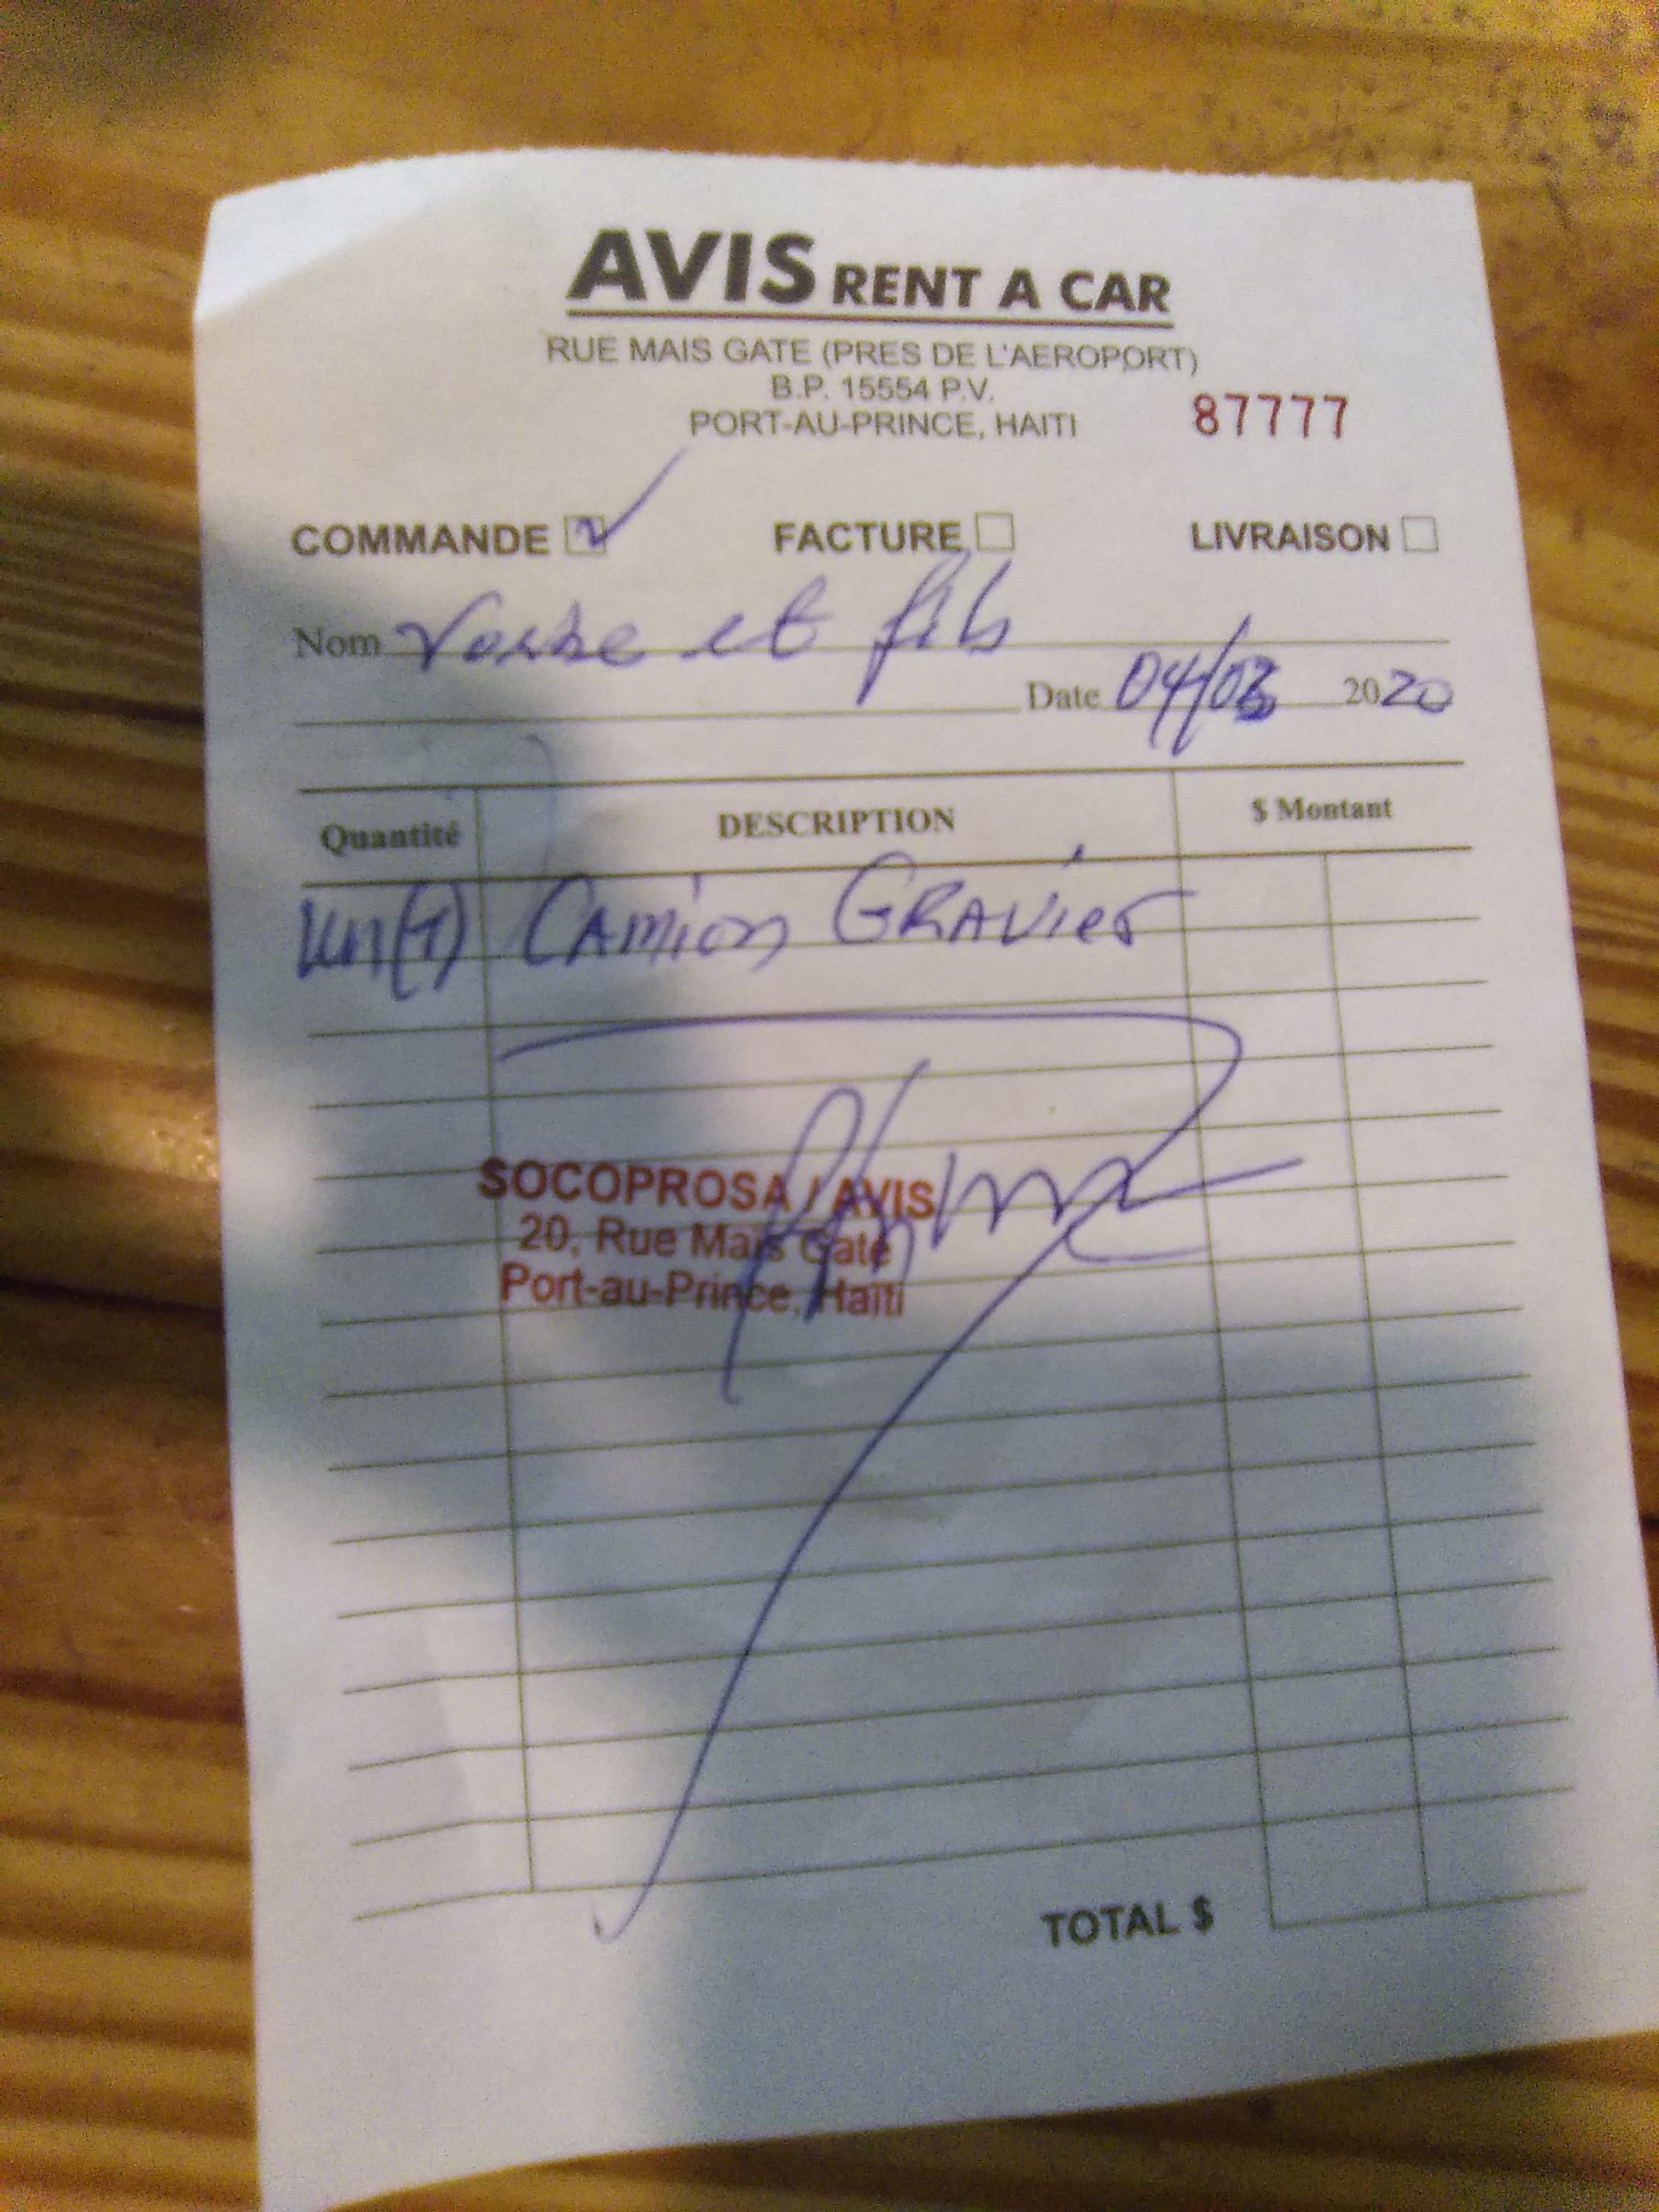 AVIS RENT A CAR
RUE MAIS GATE (PRES DE L'AEROPORT)
B.P. 15554 P.V.
PORT-AU-PRINCE, HAITI 87777
COMMANDE FACTURE LIVRAISON
Nom et fils
Date 04/03 2020
Quantité DESCRIPTION $ Montant
Un(1) CAMION GRAVIER
SOCOPROSA / AVIS
20, Rue Mais Gate
Port-au-Prince, Haiti
TOTAL $